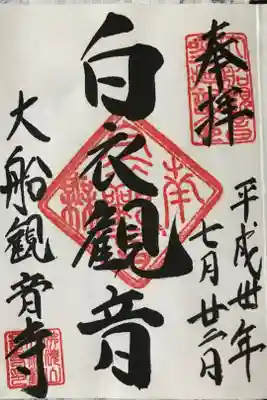 奉拝
平成卅年
七月廿二日
白衣観音
大船観音寺